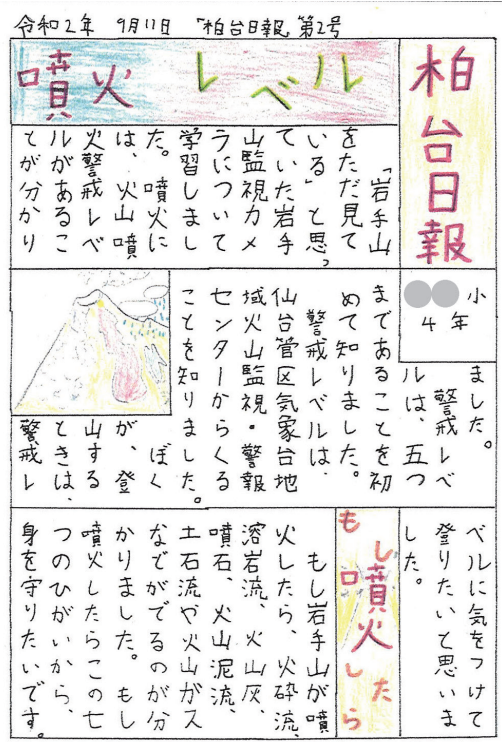 令和2年 9月11日 「柏台日報」第2号
柏台日報
噴火レベル
小
4年
「岩手山
をただ見て
いる」と思っ
ていた岩手
山監視カメ
ラについて
学習しまし
た。噴火に
は、火山噴
火警戒レベ
ルがあるこ
とが分かり
ました。
警戒レベ
ルは、五つ
まであることを初
めて知りました。
警戒レベルは、
仙台管区気象台地
域火山監視・警報
センターからくる
ことを知りました。
ぼく
が、登
山する
ときは、
警戒レ
ベルに気をつけて
登りたいと思いま
した。
もし噴火したら
もし岩手山が噴
火したら、火砕流、
溶岩流、火山灰、
噴石、火山泥流、
土石流や火山がス
などがでるのが分
かりました。もし
噴火したらこの七
つのひがいから、
身を守りたいです。